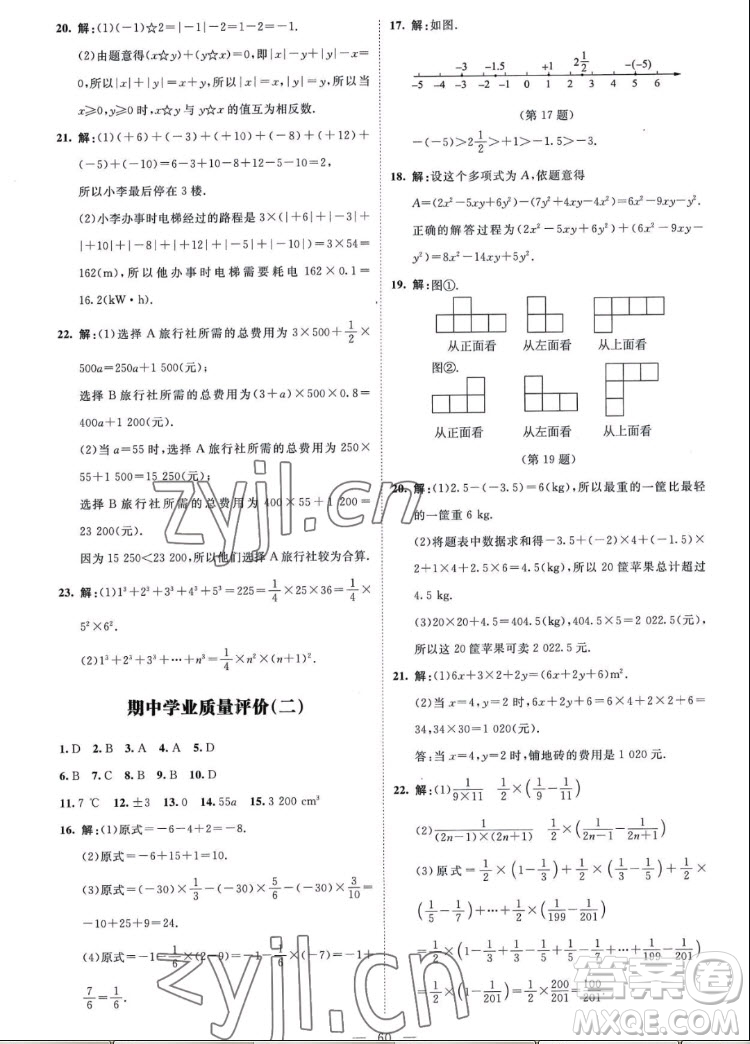 20. 解:(1)(-1)☆2=|-1|-2=1-2=-1.
(2)由题意得(x☆y)+(y☆x)=0,即|x|-y+|y|-x=
0,所以|x|+|y|=x+y,所以|x|=x,|y|=y,所以当
x⩾0,y⩾0时,x☆y与y☆x的值互为相反数.
21. 解:(1)(+6)+(-3)+(+10)+(-8)+(+12)+
(-5)+(-10)=6-3+10-8+12-5-10=2,
所以小李最后停在3楼.
(2)小李办事时电梯经过的路程是3×(|+6|+|-3|+
|+10|+|-8|+|+12|+|-5|+|-10|)=3×54=
162(m),所以他办事时电梯需要耗电162×0.1=
16.2(kW·h).
22. 解:(1)选择A旅行社所需的总费用为3×500+1/2×
500a=250a+1 500(元);
选择B旅行社所需的总费用为(3+a)×500×0.8=
400a+1 200(元).
(2)当a=55时,选择A旅行社所需的总费用为250×
55+1 500=15 250(元);
选择B旅行社所需的总费用为400×55+1 200=
23 200(元).
因为15 250<23 200,所以他们选择A旅行社较为合算.
23. 解:(1)1³+2³+3³+4³+5³=1/4×25×36=1/4×
5²×6².
(2)1³+2³+3³+…+n³=1/4×n²×(n+1)².
期中学业质量评价(二)
1. D 2. B 3. A 4. A 5. D
6. B 7. C 8. B 9. D 10. D
11. 7 ℃ 12. ±3 13. 0 14. 55a 15. 3 200 cm³
16. 解:(1)原式=-6-4+2=-8.
(2)原式=-6+15+1=10.
(3)原式=(-30)×1/3-(-30)×5/6-(-30)×3/10=
-10+25+9=24.
(4)原式=-1-1/6×(2-9)=-1-1/6×(-7)=-1+
7/6=1/6.
17. 解:如图.
-3 -1.5 +1 2 1/2 -(-5)
-5 -4 -3 -2 -1 0 1 2 3 4 5 6
(第17题)
-(-5)>2 1/2>+1>-1.5>-3.
18. 解:设这个多项式为A,依题意得
A=(2x²-5xy+6y²)-(7y²+4xy-4x²)=6x²-9xy-y².
正确的解答过程为(2x²-5xy+6y²)+(6x²-9xy-
y²)=8x²-14xy+5y².
19. 解:图①.
从正面看 从左面看 从上面看
图②.
从正面看 从左面看 从上面看
(第19题)
20. 解:(1)2.5-(-3.5)=6(kg),所以最重的一筐比最轻的
一筐重6 kg.
(2)将题表中数据求和得-3.5+(-2)×4+(-1.5)×
2+1×4+2.5×6=4.5(kg),所以20筐苹果总计超过
4.5 kg.
(3)20×20+4.5=404.5(kg),404.5×5=2 022.5(元),
所以这20筐苹果可卖2 022.5元.
21. 解:(1)6x+3×2+2y=(6x+2y+6)m².
(2)当x=4,y=2时,6x+2y+6=6×4+2×2+6=
34,34×30=1 020(元).
答:当x=4,y=2时,铺地砖的费用是1 020元.
22. 解:(1)1/(9×11) 1/2×(1/9-1/11)
(2)1/((2n-1)×(2n+1)) 1/2×(1/(2n-1)-1/(2n+1))
(3)原式=1/2×(1-1/3)+1/2×(1/3-1/5)+1/2×
(1/5-1/7)+…+1/2×(1/199-1/201)
=1/2×(1-1/3+1/3-1/5+1/5-1/7+…+1/199-1/201)
=1/2×(1-1/201)=1/2×200/201=100/201.
60
zyjl.cn
zyjl.cn
答案圈
MXQE.COM